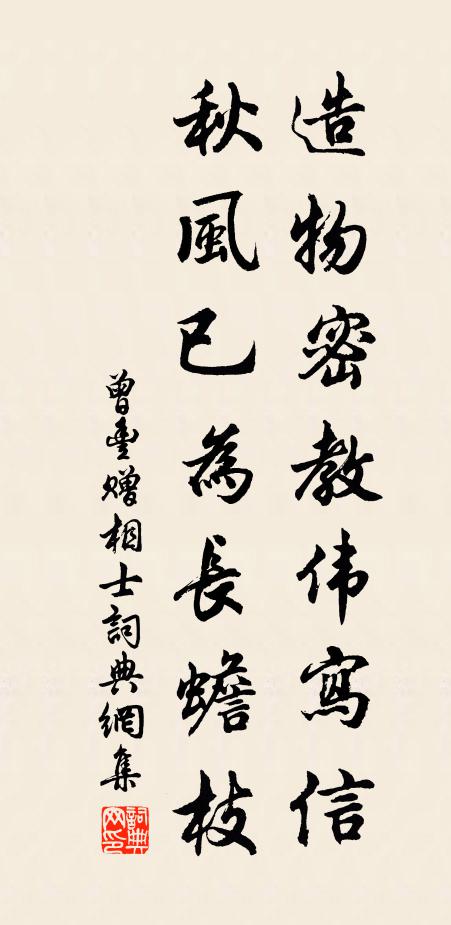 造物密教伟寫信
秋風已為長蟾枝
曾豊贈相士詞典網集
詞典网印